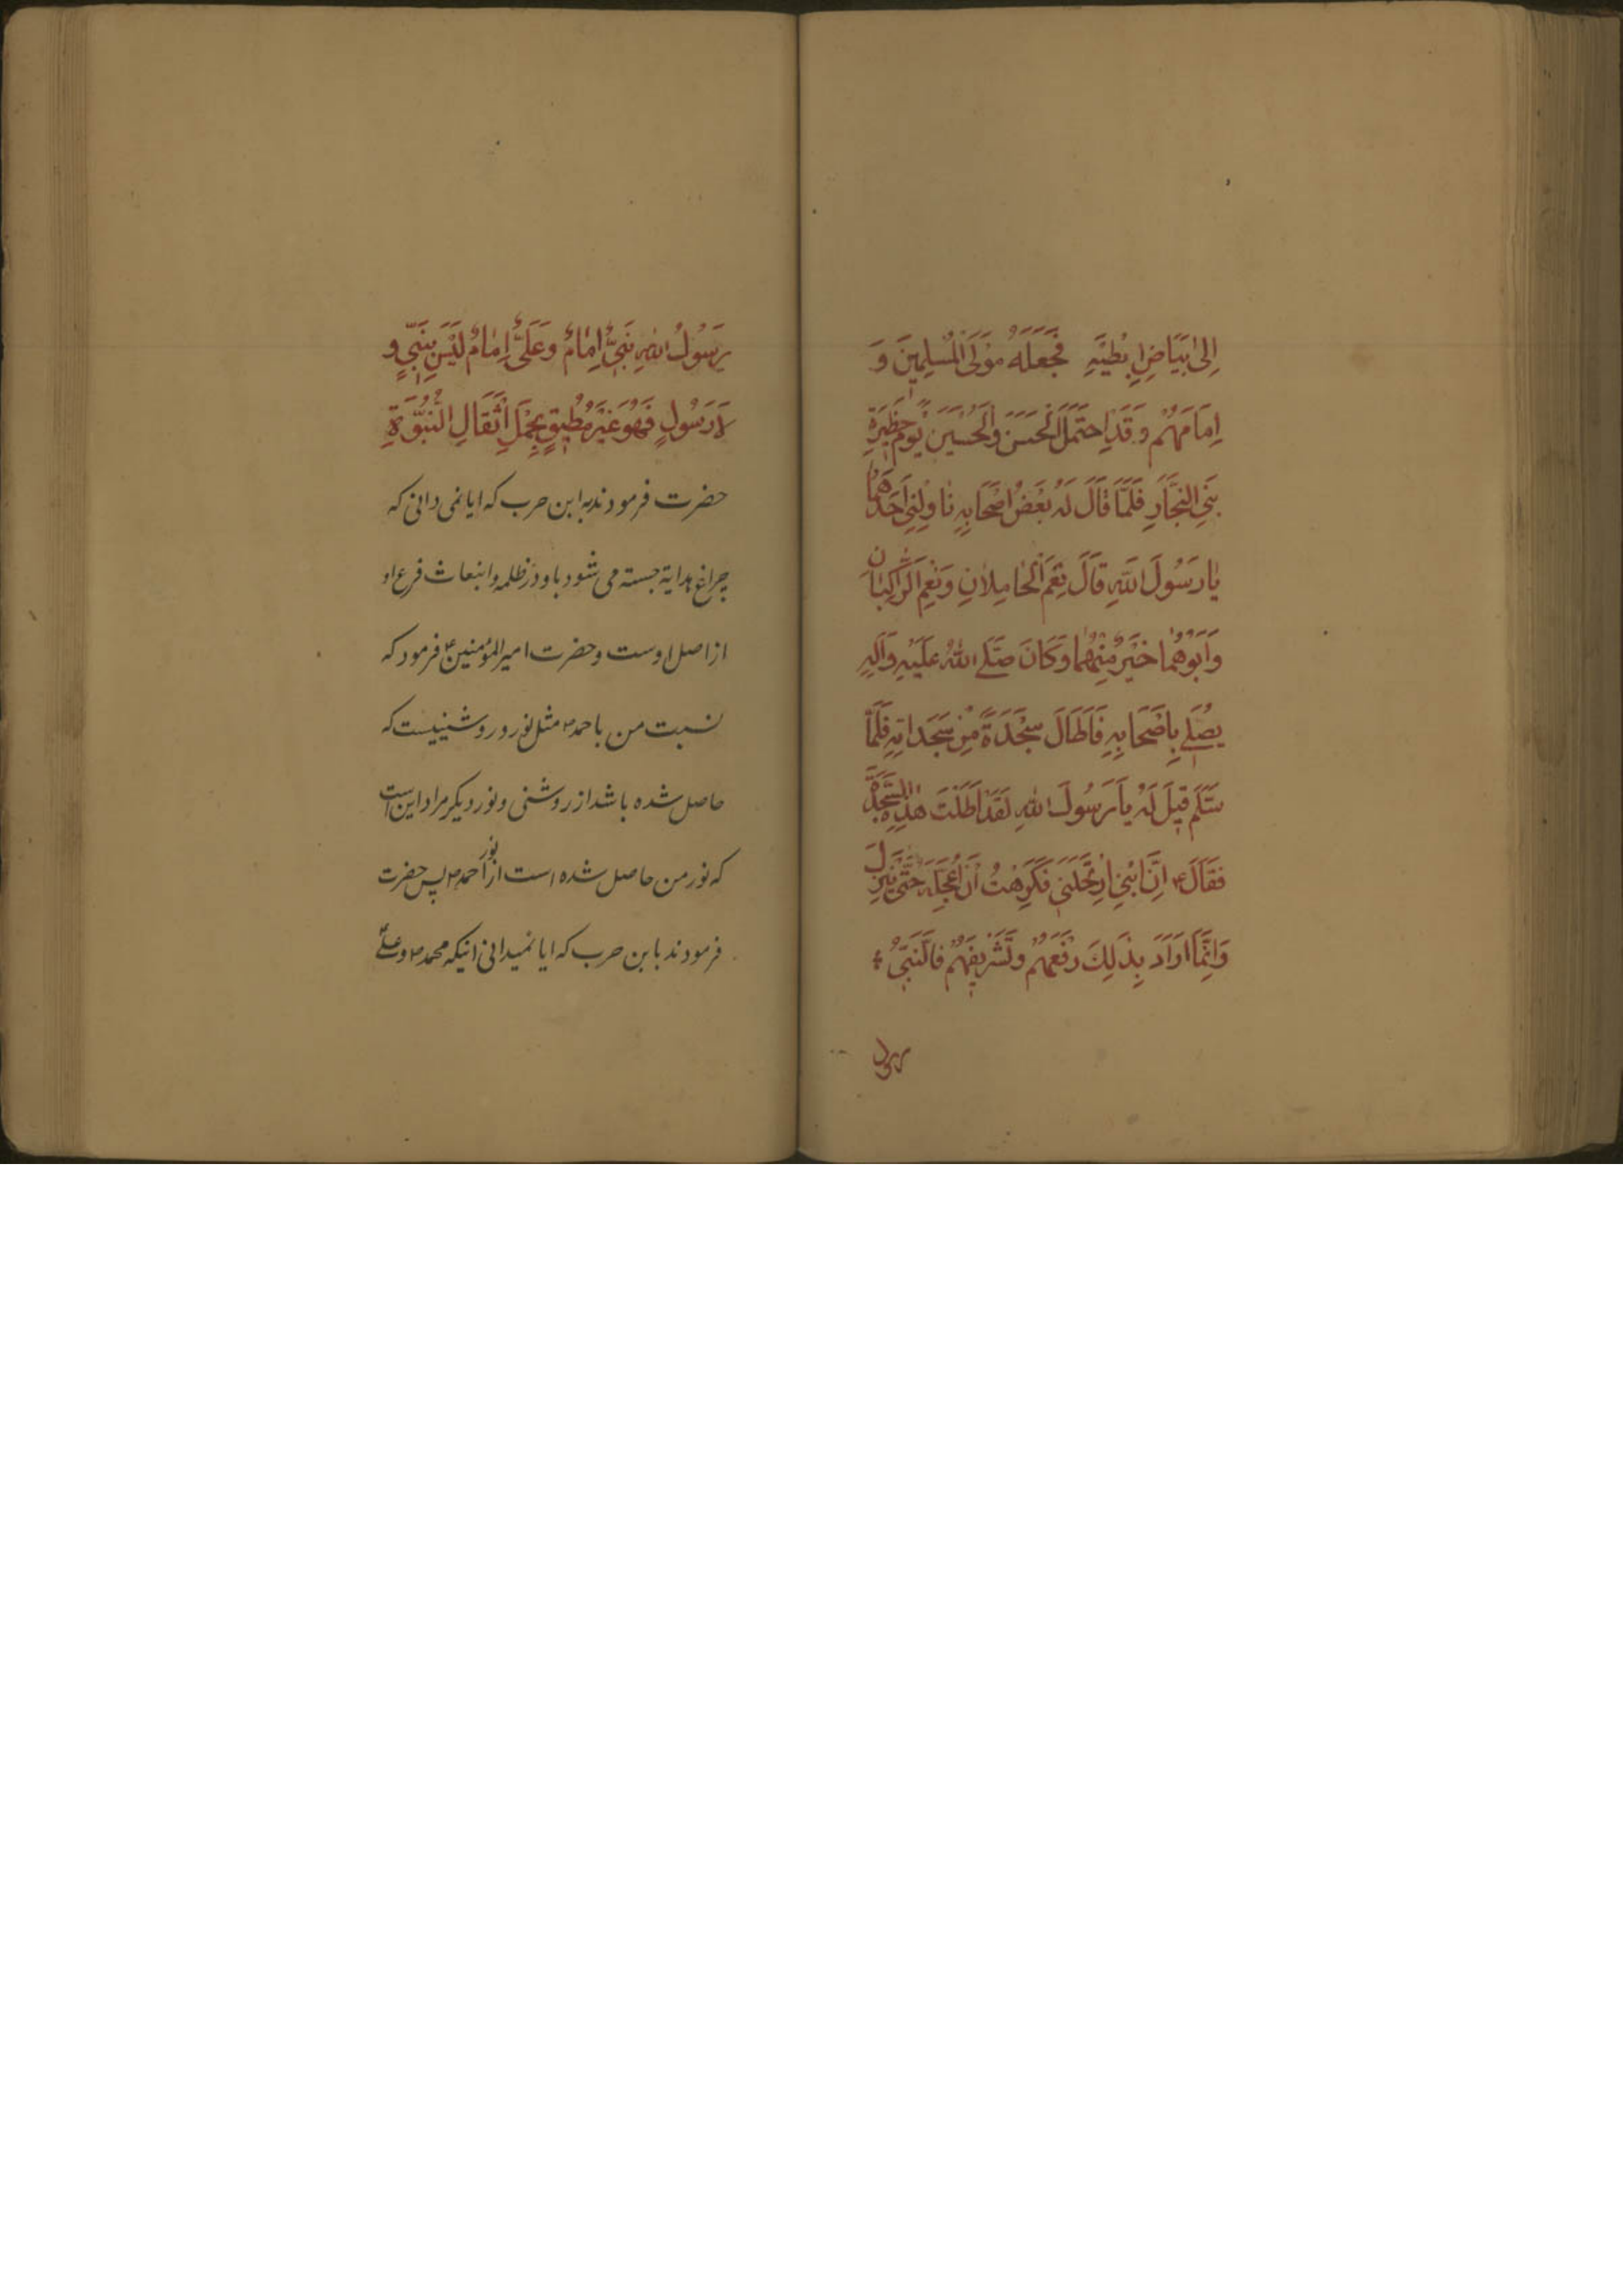 اِلىٰ بَيَاضِ اِبْطَيْهِ فَجَعَلَهُ مَوْلَى الْمُسْلِمِينَ وَ
اِمَامَهُمْ وَقَدِ احْتَمَلَ الْحَسَنَ وَالْحُسَيْنَ يَوْمَ حَظِيرَةِ
بَنِي النَّجَّارِ فَلَمَّا قَالَ لَهُ بَعْضُ اَصْحَابِهِ نَاوِلْنِي اَحَدَهُمَا
يَا رَسُولَ اللهِ قَالَ نِعْمَ الْحَامِلَانِ وَنِعْمَ الرَّاكِبَانِ
وَاَبُوهُمَا خَيْرٌ مِنْهُمَا وَكَانَ صَلَّى اللهُ عَلَيْهِ وَآلِهِ
يُصَلِّي بِاَصْحَابِهِ فَاَطَالَ سَجْدَةً مِنْ سَجَدَاتِهِ فَلَمَّا
سَلَّمَ قِيلَ لَهُ يَا رَسُولَ اللهِ لَقَدْ اَطَلْتَ هٰذِهِ السَّجْدَةَ
فَقَالَ ص اِنَّ ابْنِي ارْتَحَلَنِي فَكَرِهْتُ اَنْ اُعَجِّلَهُ حَتَّى يَنْزِلَ
وَاِنَّمَا اَرَادَ بِذٰلِكَ رَفْعَهُمْ وَتَشْرِيفَهُمْ فَالنَّبِيُّ
رسول
رَسُولُ اللهِ نَبِيٌّ اِمَامٌ وَعَلِيٌّ اِمَامٌ لَيْسَ بِنَبِيٍّ وَ
لَا رَسُولٍ فَهُوَ غَيْرُ مُطِيقٍ بِحَمْلِ اَثْقَالِ النُّبُوَّةِ
حضرت فرمودند به ابن حرب که ایا نمی دانی که
چراغ هدایة جسته می شود باو در ظلمه و انبعاث فرع او
از اصل اوست و حضرت امیر المؤمنین ع فرمود که
نسبت من با احمد ص مثل نور و روشنییست که
حاصل شده باشد از روشنی و نور دیکر مراد این است
که نور من حاصل شده است از نور احمد ص پس حضرت
فرمودند بابن حرب که ایا نمیدانی اینکه محمد ص و علی ع